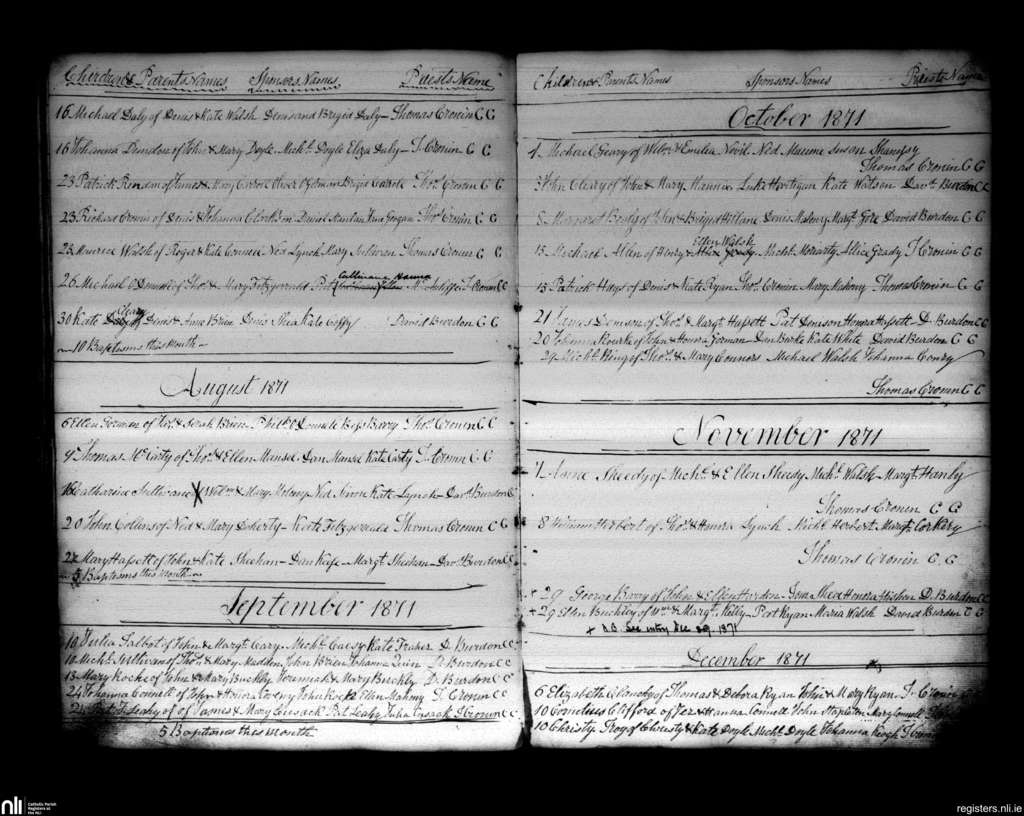 Children & Parents Names Sponsors Names Priests Name
16 Michael Daly of Denis & Kate Walsh Denis and Brigid Daly - Thomas Cronin C C
16 Johanna of John & Mary Doyle Michl. Doyle Eliza Daly - T. Cronin C C
23 Patrick of James & Mary Carroll Brigid Carroll Thos. Cronin C C
23 Richard Cronin of Denis & Johanna Daniel Thos. Cronin C C
23 Maurice Walsh of Roger & Kate Connell Ned Lynch Mary Sullivan Thomas Cronin C C
Cullinane Hanna
26 Michael of Thos. & Mary Fitzgerald Pat McAuliffe T. Cronin C C
Cleary
30 Kate of Denis & Anne Brien Denis Shea Kate Coffy David Burdon C C
10 Baptisms this Month
August 1871
6 Ellen Gorman of & Sarah Brien Philip O'Donnell Bess Barry Thos. Cronin C C
9 Thomas McCarty of Thos. & Ellen Mansel Dan Mansel Kate Carty T. Cronin C C
Catharine Sullivan of Wilm & Mary Molony Ned Kate Lynch Davd. Burdon C C
20 John Collins of Ned & Mary Doherty - Kate Fitzgerald Thomas Cronin C C
22 Mary Hassett of John & Kate Sheehan - Dan Keife - Margt. Sheehan - Davd. Burdon C C
5 Baptisms this Month
September 1871
10 Julia Talbot of John & Margt. Casey Michl. Casey Kate Fraher D. Burdon C C
10 Michl. Sullivan of Thos. & Mary Madden John Brien Johanna Quin D. Burdon C C
13 Mary Roche of John & Mary Buckly Jeremiah & Mary Buckly D. Burdon C C
24 Johanna Connell of John & John Roche Ellen Mahony T. Cronin C C
24 Pat Leahy of of James & Mary Cusack Pat Leahy Julia Cusack T. Cronin C C
5 Baptisms this Month
Children & Parents Names Sponsors Names Priests Name
October 1871
Michael Geary of Wilm. & Emelia Nevil Ned Susan
Thomas Cronin C C
John Cleary of John & Mary Luke Hartigan Kate Watson Davd. Burdon C C
8 Margaret of John & Brigid Denis Malony Margt. Gore David Burdon C C
Ellen Walsh
15 Michael Allen of Henry & Michl. Moriarty Allice Grady T. Cronin C C
15 Patrick Hays of Denis & Kate Ryan Thos. Cronin Mary Mahony Thomas Cronin C C
21 James Denison of Thos. & Margt. Hassett Pat Denison Honora Hassett D. Burdon C C
20 Johanna Rourke of John & Honora Gorman - Dan Burke Kate White David Burdon C C
Michl. Wing of Thos. & Mary Connors Michael Walsh Johanna Conry
Thomas Cronin C C
November 1871
Anne Sheedy of Michl. & Ellen Sheedy Michl. Walsh - Margt. Hanly
Thomas Cronin C C
8 William Herbert of Thos. & Honora Lynch Michl. Herbert Margt. Corkery
Thomas Cronin C C
+ 29 George Barry of John & Ellen Shea Honora D. Burdon C C
+ 29 Ellen Buckley of Wm & Margt. Kelly - Pat Ryan Maria Walsh David Burdon C C
+ See entry Dec 29. 1871
December 1871
6 Elizabeth of Thomas & Debora Ryan John & Mary Ryan T. Cronin
10 Cornelius Clifford of Jer & Hanna Connell John Stapleton Mary Connell
10 Christy Troy of Christy & Kate Doyle Michl. Doyle Johanna Keogh T. Cronin
nli
Catholic Parish
Registers at
the NLI
registers.nli.ie